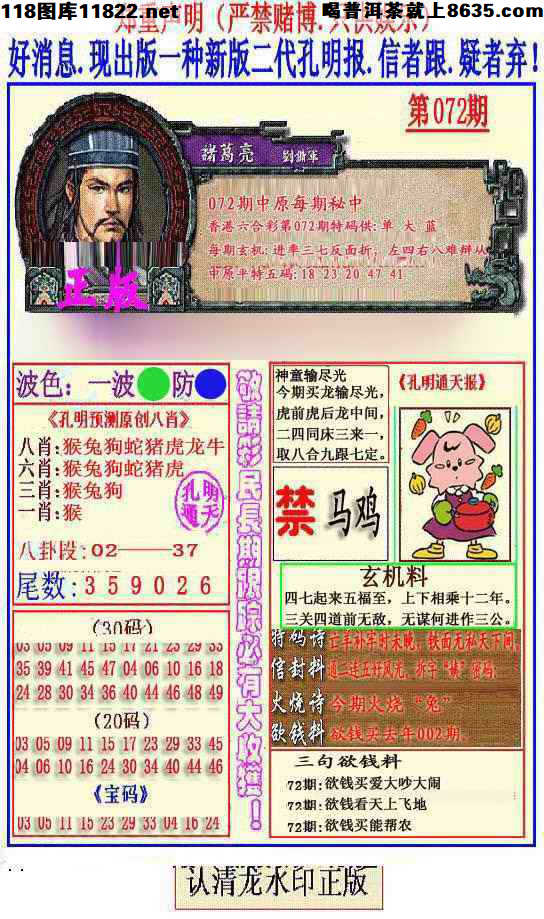 118图库11822.net
喝普洱茶就上8635.com
郑重声明（严禁赌博.只供娱乐）
好消息.现出版一种新版二代孔明报.信者跟.疑者弃!
第072期
諸葛亮 劉備軍
072期中原每期秘中
香港六合彩第072期特码供:单 大 蓝
每期玄机:进率三七反面折，左四右八难辩从
中原平特五码:18 23 20 47 41
正版
波色：一波 防
《孔明预测原创八肖》
八肖:猴兔狗蛇猪虎龙牛
六肖:猴兔狗蛇猪虎
三肖:猴兔狗
一肖:猴
孔明通天
八卦段:02——37
尾数:359026
(30码)
03 05 09 11 15 17 21 23 29 33
35 39 41 45 47 04 06 10 16 18
24 28 30 34 36 40 44 46 48 49
(20码)
03 05 09 11 15 17 23 29 33 45
04 06 10 16 24 30 34 40 44 46
《宝码》
03 05 11 15 23 29 33 04 16 24
敬請彩民長期跟踪必有大收獲！
神童输尽光
今期买龙输尽光，
虎前虎后龙中间，
二四同床三来一，
取八合九跟七定。
《孔明通天报》
禁 马鸡
玄机料
四七起来五福至，上下相乘十二年。
三关四道前无敌，无谋何进作三公。
特码诗 亡羊补牢时未晚，铁面无私天下间
信封料 道二连五好风光，拆字“
火烧诗 今期火烧“兔”
欲钱料 欲钱买去年002期.
三句欲钱料
72期:欲钱买爱大吵大闹
72期:欲钱看天上飞地
72期:欲钱买能帮农
认清龙水印正版